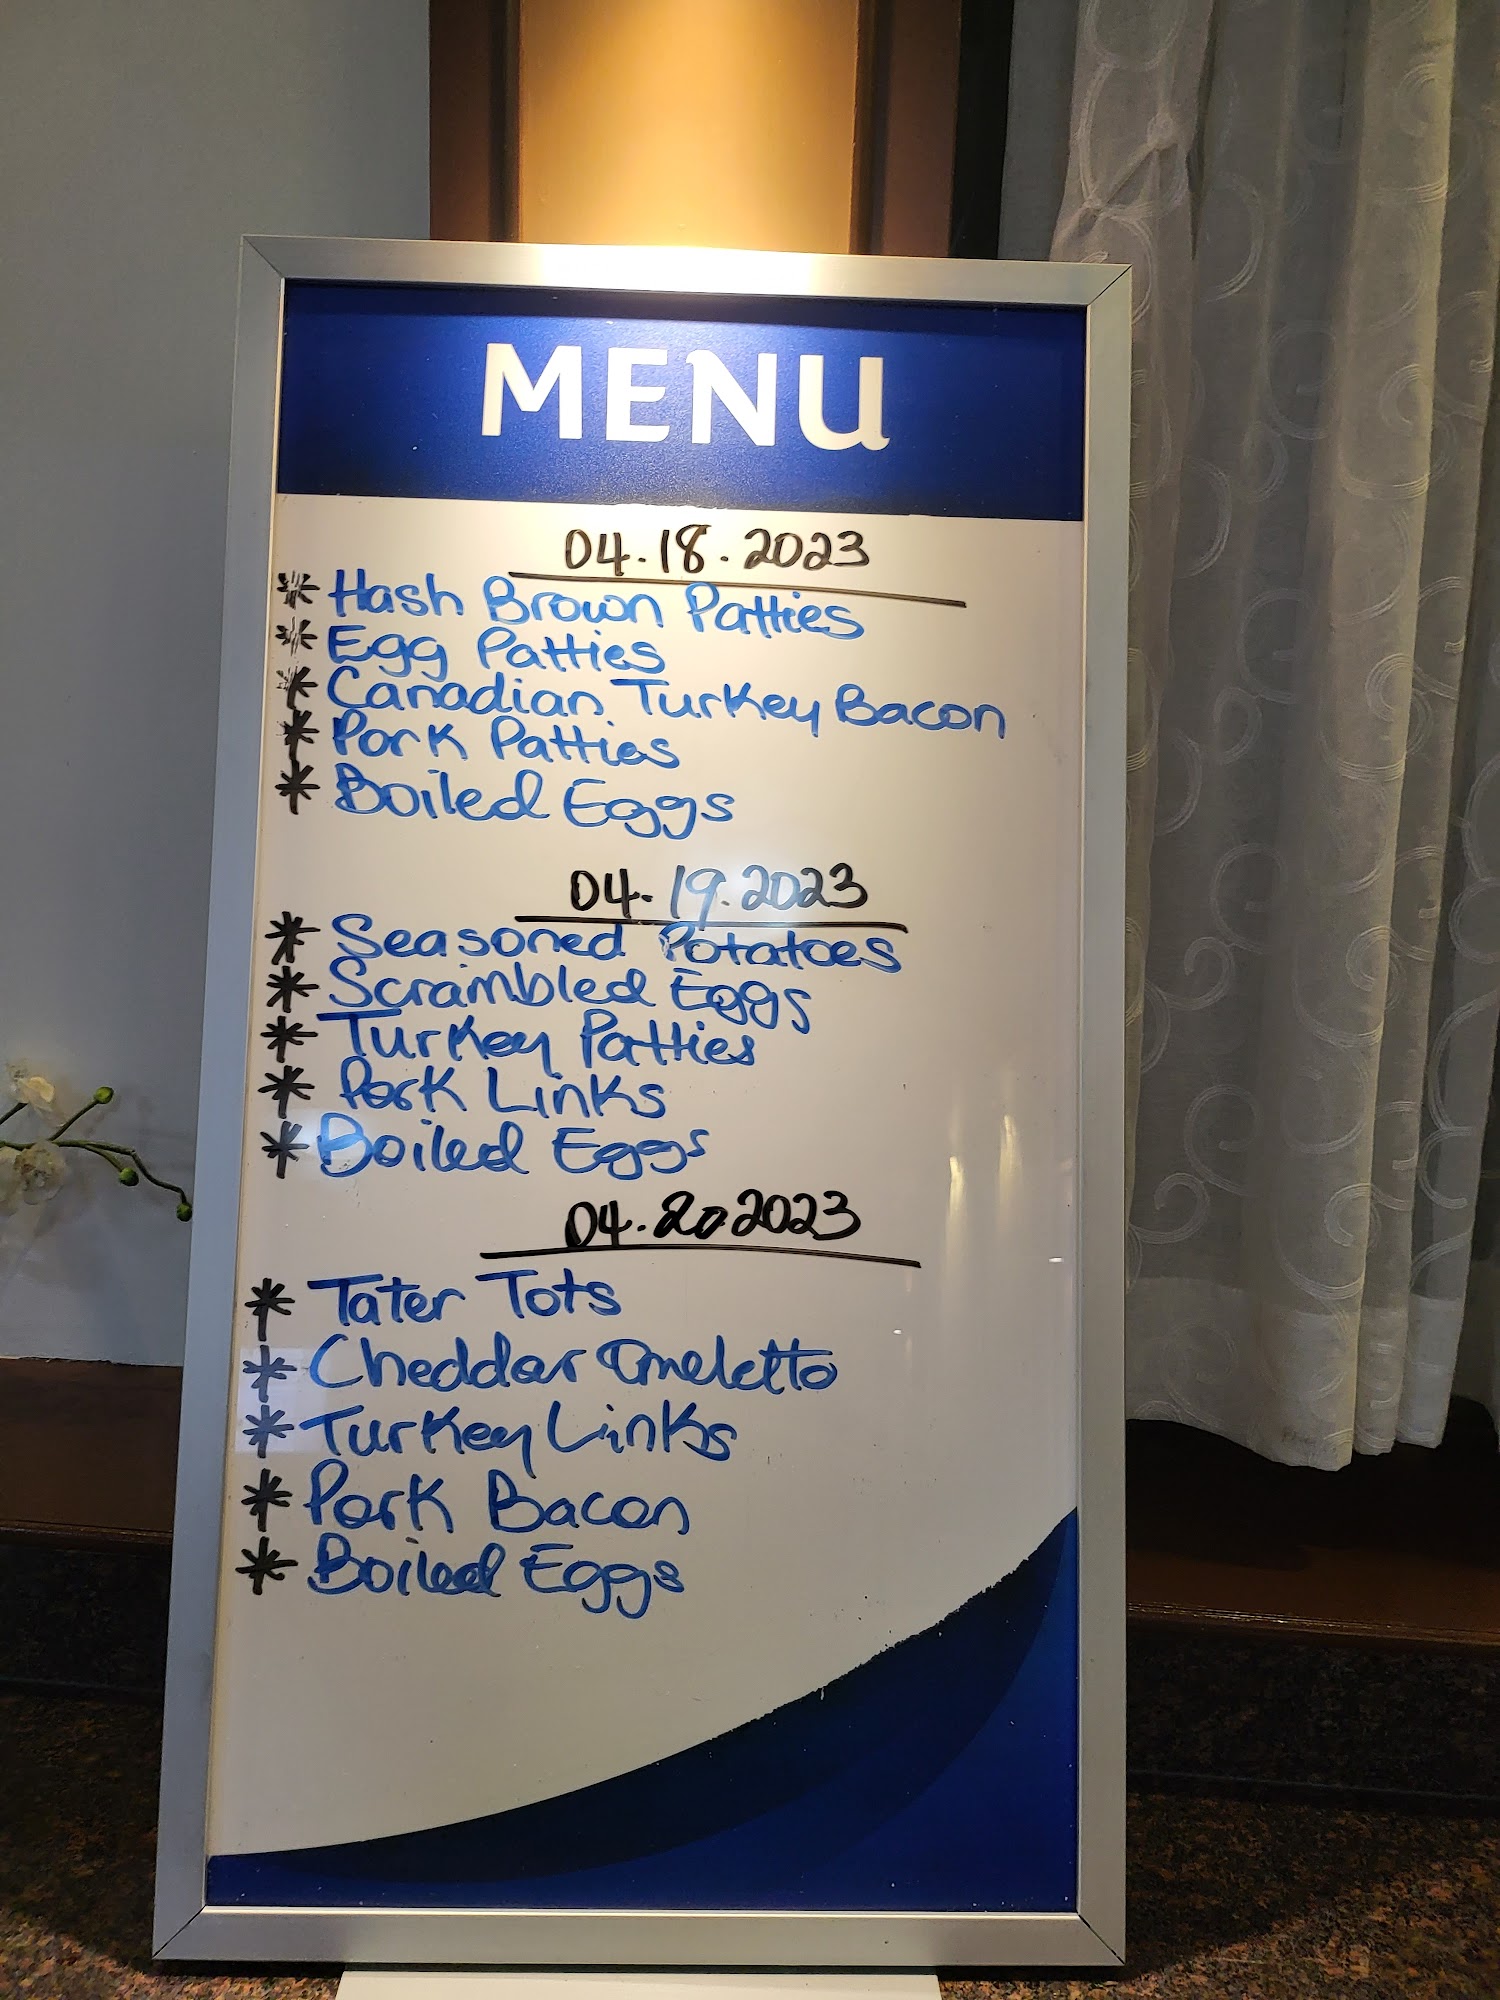 MENU
04.18.2023
* Hash Brown Patties
* Egg Patties
* Canadian Turkey Bacon
* Pork Patties
* Boiled Eggs
04.19.2023
* Seasoned Potatoes
* Scrambled Eggs
* Turkey Patties
* Pork Links
* Boiled Eggs
04.20 2023
* Tater Tots
* Cheddar Omeletto
* Turkey Links
* Pork Bacon
* Boiled Eggs